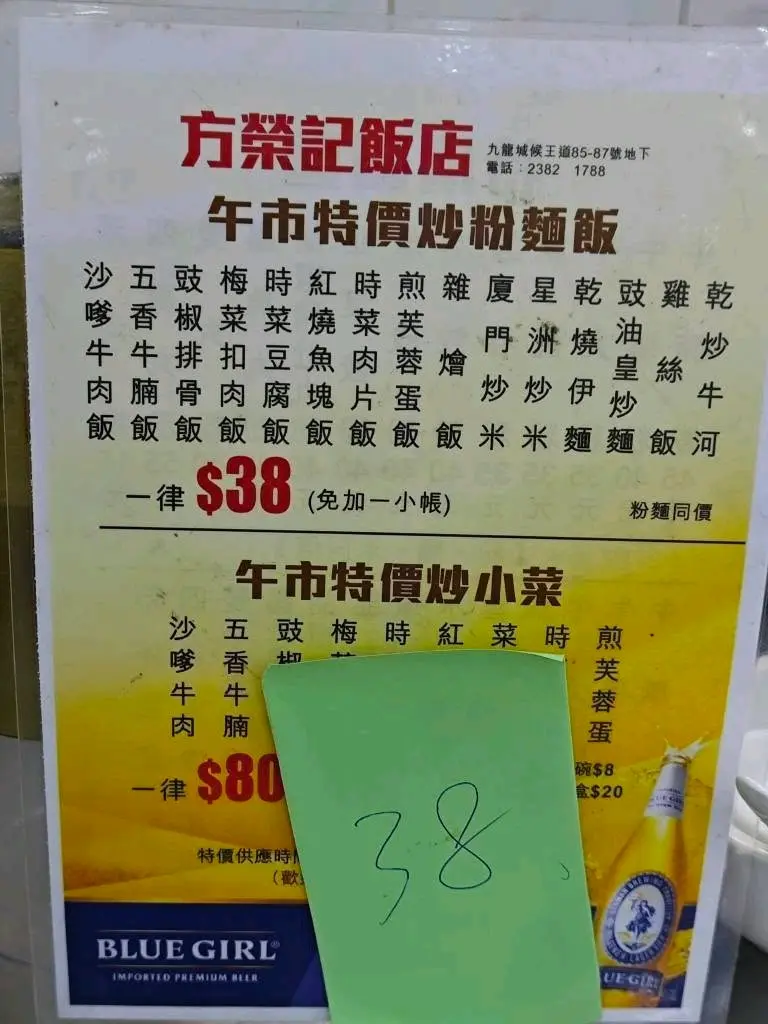 方榮記飯店
九龍城候王道85-87號地下
電話：2382 1788
午市特價炒粉麵飯
沙嗲牛肉飯
五香牛腩飯
豉椒排骨飯
梅菜扣肉飯
時菜豆腐飯
紅燒魚塊飯
時菜肉片飯
煎芙蓉蛋飯
雜燴飯
廈門炒米
星洲炒米
乾燒伊麵
豉油皇炒麵
雞絲飯
乾炒牛河
一律 $38 (免加一小帳)
粉麵同價
午市特價炒小菜
沙嗲牛肉
五香牛腩
豉椒
梅
時
紅
菜
時
煎芙蓉蛋
一律 $80
碗$8
盒$20
特價供應時
(歡
38
BLUE GIRL®
IMPORTED PREMIUM BEER